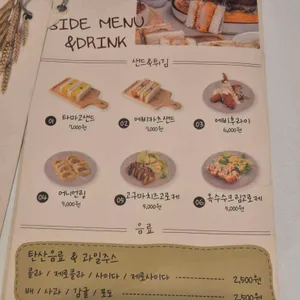 SIDE MENU
&DRINK
샌드&튀김
01 타마고산도
7,000원
02 에비카츠산도
9,000원
03 에비후라이
6,000원
04 어니언링
5,000원
05 고구마치즈고로케
5,000원
06 옥수수크림고로케
5,000원
음료
탄산음료 & 과일주스
콜라 / 제로콜라 / 사이다 / 제로사이다 2,500원
배 / 사과 / 감귤 / 포도 2,500원